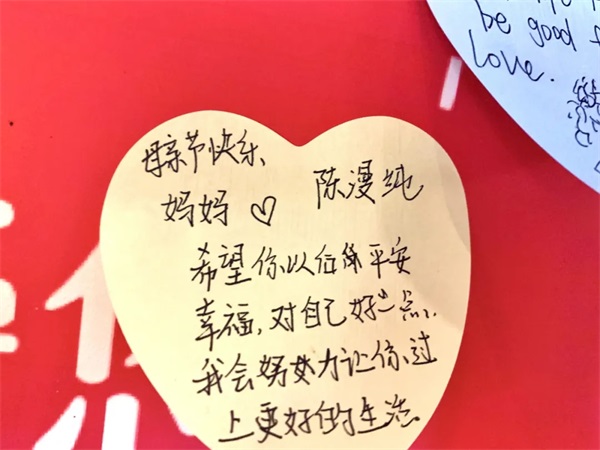 be good
Love.
母亲节快乐、
妈妈♡ 陈漫纯
希望你以后平安
幸福,对自己好一点,
我会努力让你过
上更好的生活